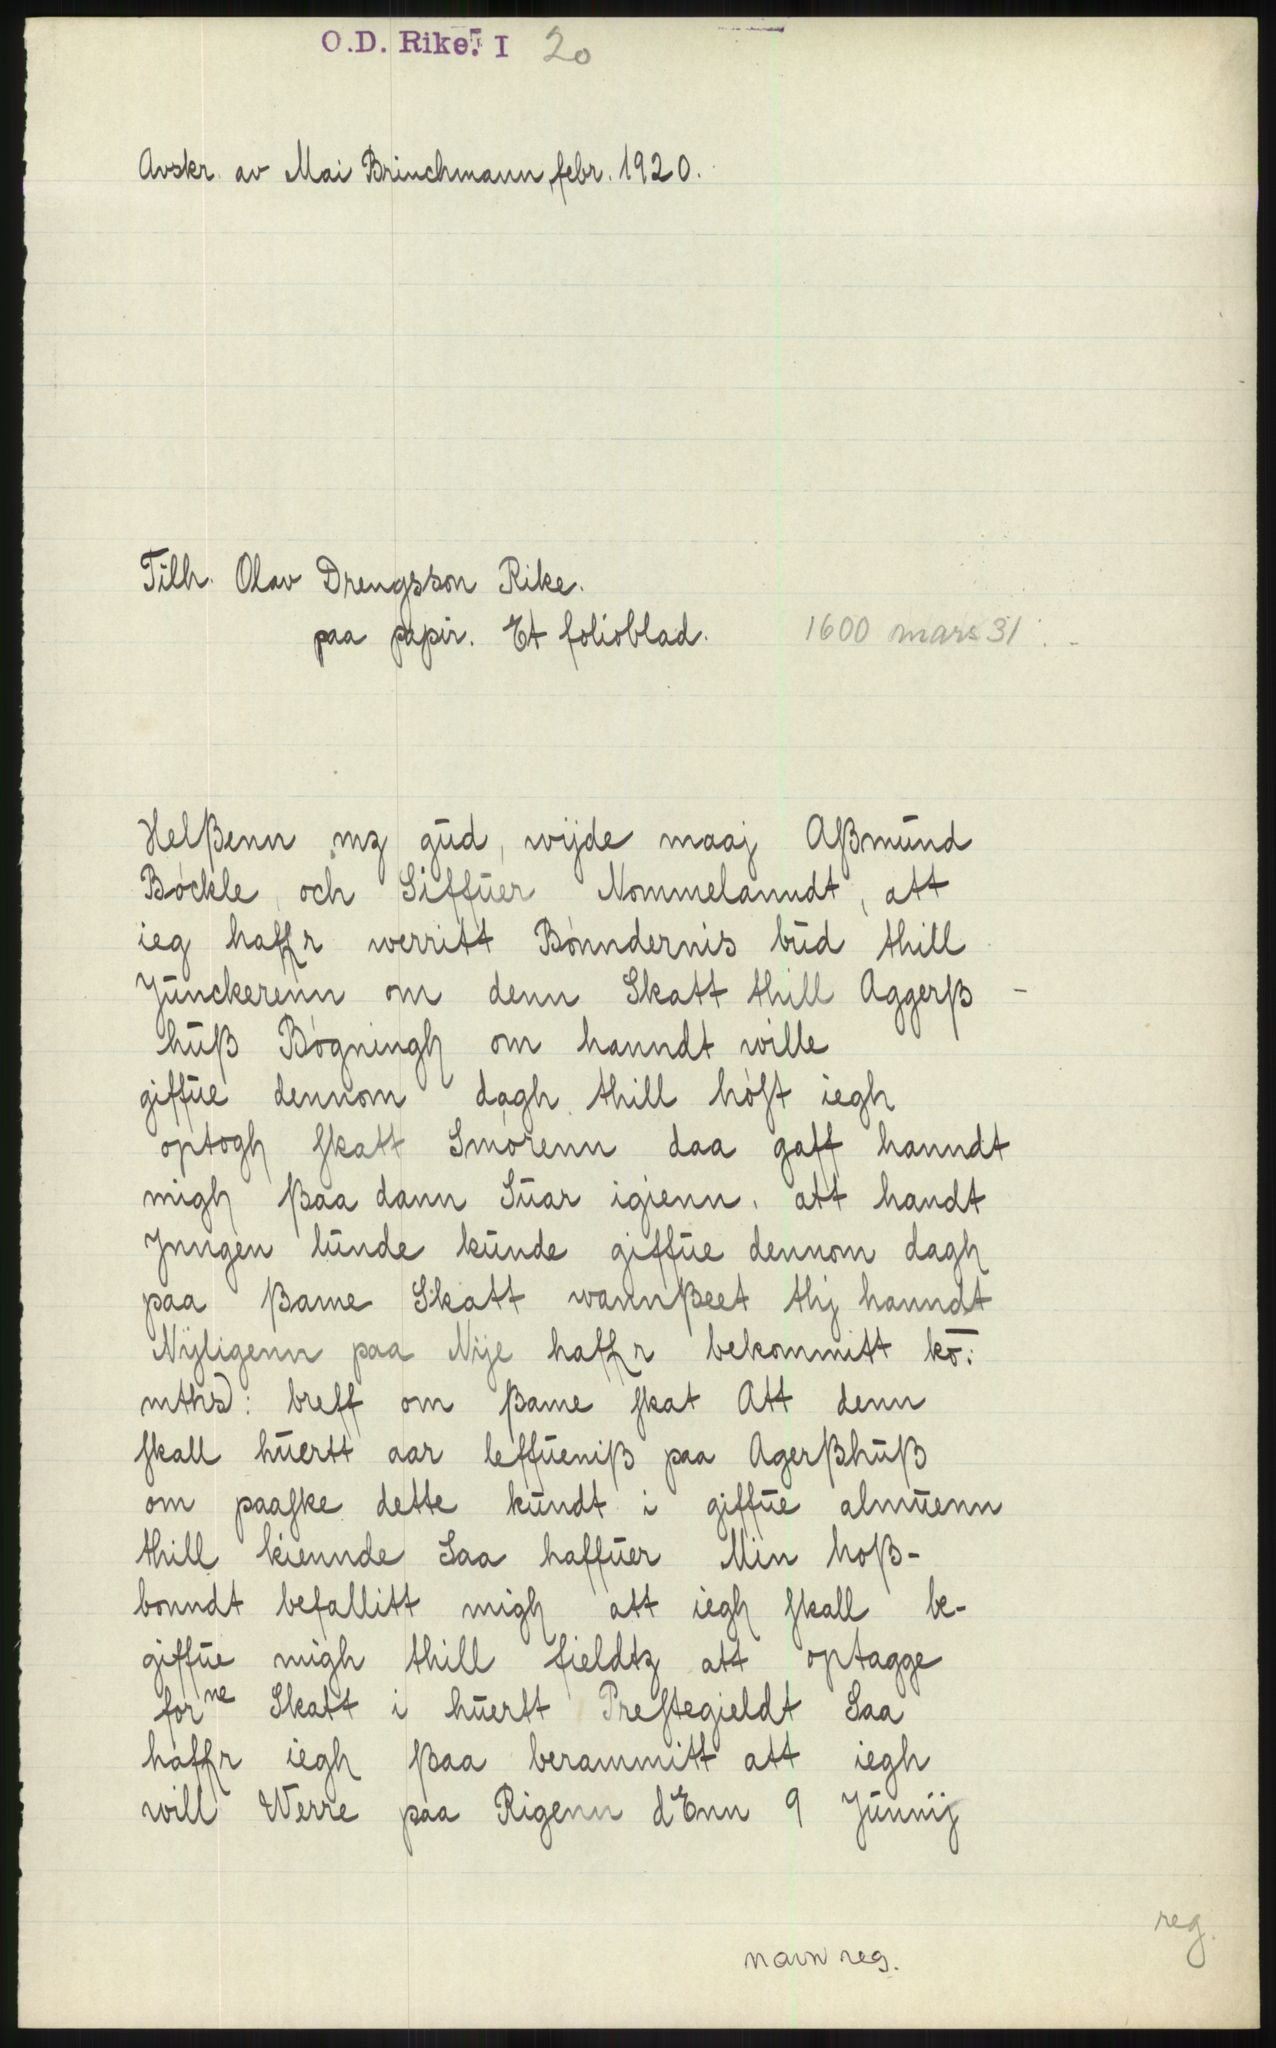 O.D. Rike. I 20
Avskr. av Mai Brinchmann, febr. 1920.
Tilh. Olav Drengsson Rike.
paa papir. Et folioblad. 1600 mars 31
Helßenn mz gŭd, wijde maaj Aßmŭnd
Bøckle, och Siffŭer Nommelanndt, att
ieg haffr werritt Bønndernis bŭd thill
Jŭnckerenn om denn Skatt thill Aggerß-
hŭß Bøgningh om hanndt wille
giffŭe dennom dagh thill høst iegh
optogh skatt Smørenn daa gaff hanndt
migh ßaa dann Sŭar igienn. att handt
Jnngen lŭnde kŭnde giffŭe dennom dagh
paa ßame Skatt wannßeet thj hanndt
Nijligenn paa Nije haffr bekommitt kō:
mths: breff om ßame skat Att denn
skall hŭertt aar leffŭeniß paa Agerßhŭß
om paaske dette kŭndt i giffŭe almŭenn
thill kiennde Saa haffŭer Min hoß-
bonndt befallitt migh att iegh skall be-
giffŭe migh thill fieldtz att optagge
forne Skatt i hŭertt Prestegieldt Saa
haffr iegh ßaa berammitt att iegh
will Werre paa Rigenn dEnn 9 Jŭnnij
reg.
navnreg.